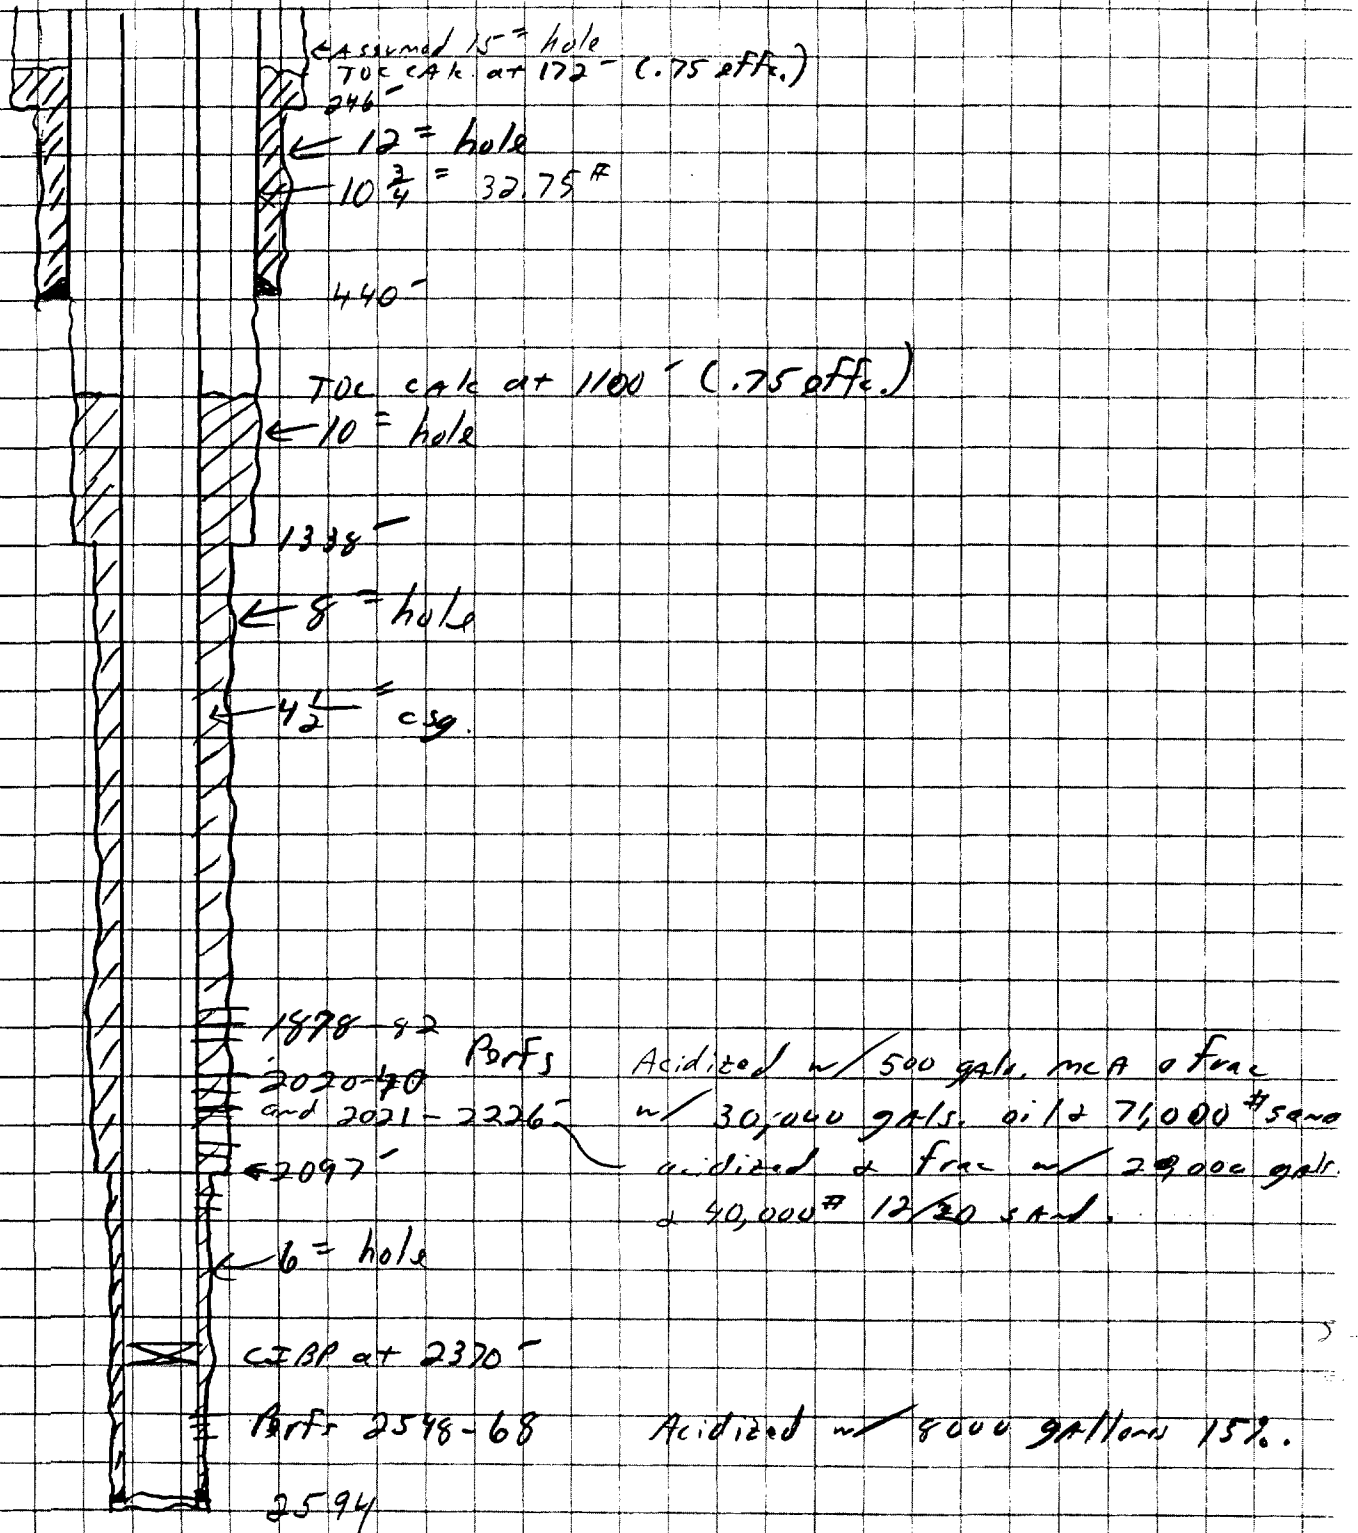 Assumed 15" hole
TOC cAlc. at 172' (.75 effc.)
246'
12" hole
10 3/4" 32.75#
440'
TOC cAlc at 1100' (.75 effc.)
10" hole
1338'
8" hole
4 1/2" csg.
1878-82
Perfs
2020-40
and 2021-2226'
Acidized w/ 500 gAls. mcA & frac
w/ 30,000 gAls. oil & 71,000# sand
acidized & frac w/ gals.
& 40,000# 12/20 sAnd.
2097'
6" hole
CIBP at 2370'
Perfs 2548-68 Acidized w/ 8000 gAllons 15%.
2594